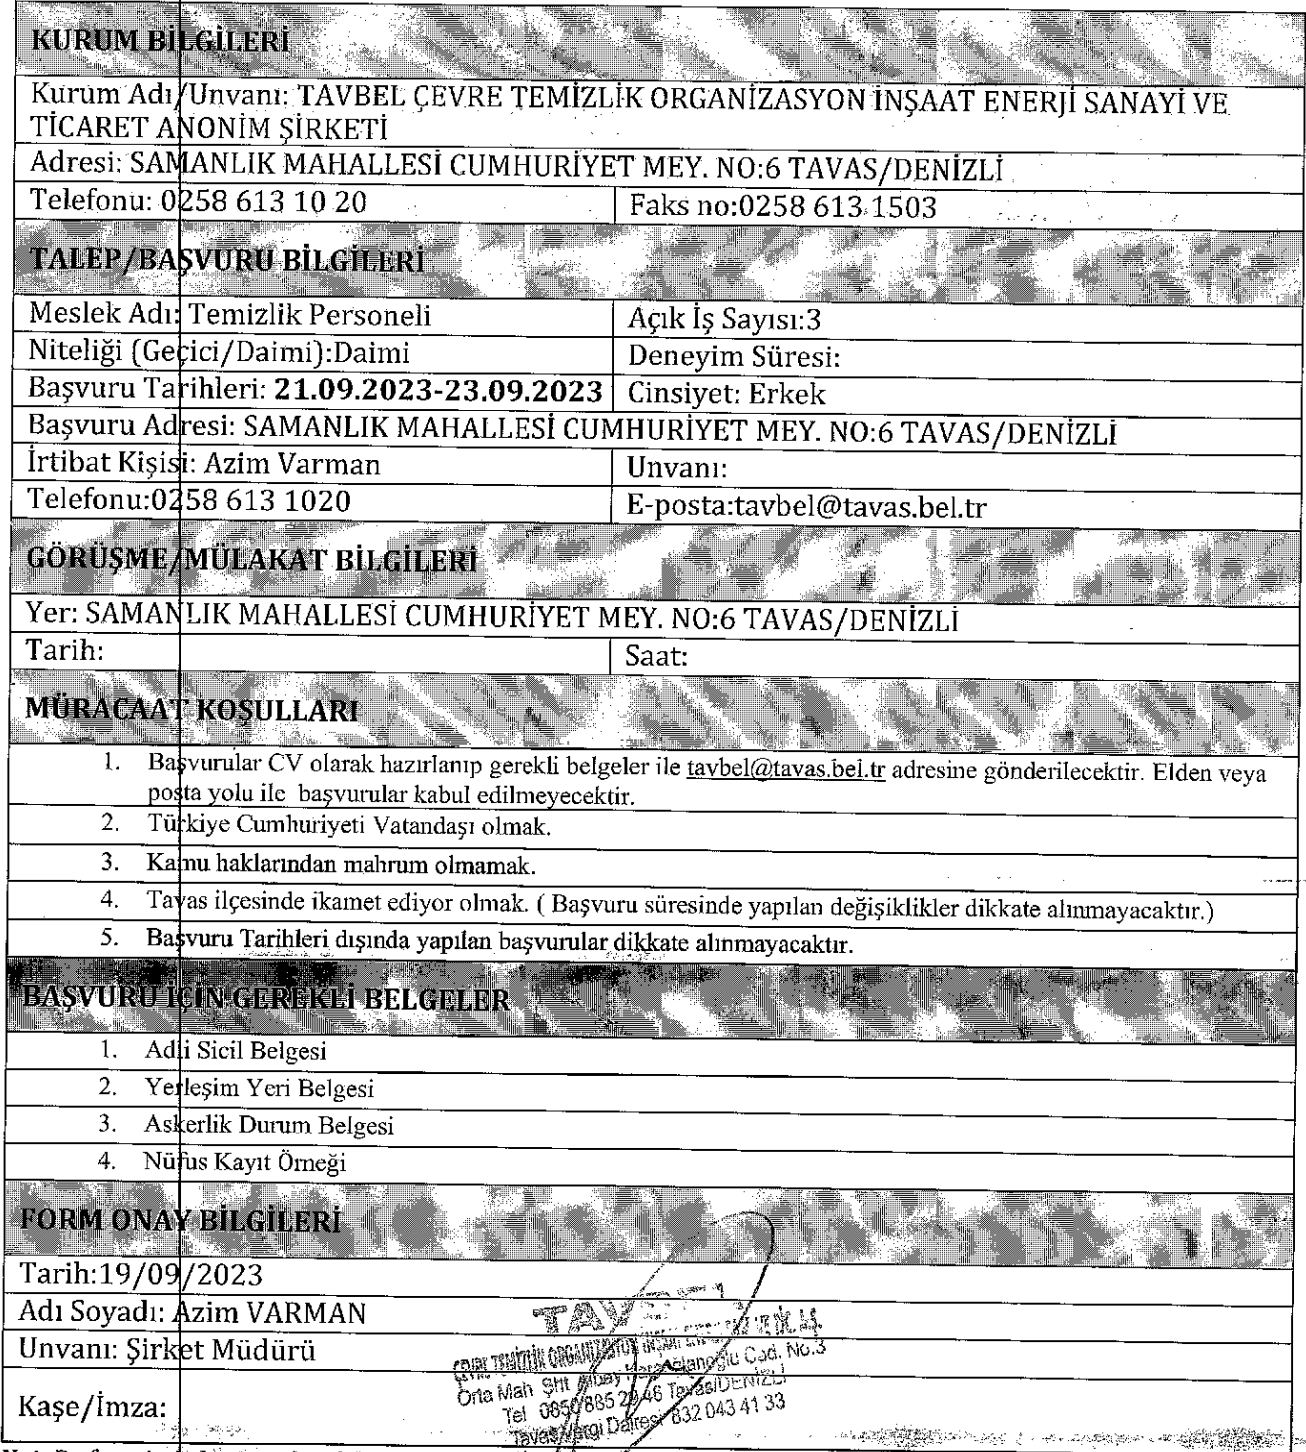 KURUM BİLGİLERİ
Kurum Adı/Unvanı: TAVBEL ÇEVRE TEMİZLİK ORGANİZASYON İNŞAAT ENERJİ SANAYİ VE
TİCARET ANONİM ŞİRKETİ
Adresi: SAMANLIK MAHALLESİ CUMHURİYET MEY. NO:6 TAVAS/DENİZLİ
Telefonu: 0258 613 10 20
Faks no:0258 613 1503
TALEP/BAŞVURU BİLGİLERİ
Meslek Adı: Temizlik Personeli
Açık İş Sayısı:3
Niteliği (Geçici/Daimi):Daimi
Deneyim Süresi:
Başvuru Tarihleri: 21.09.2023-23.09.2023
Cinsiyet: Erkek
Başvuru Adresi: SAMANLIK MAHALLESİ CUMHURİYET MEY. NO:6 TAVAS/DENİZLİ
İrtibat Kişisi: Azim Varman
Unvanı:
Telefonu:0258 613 1020
E-posta:tavbel@tavas.bel.tr
GÖRÜŞME/MÜLAKAT BİLGİLERİ
Yer: SAMANLIK MAHALLESİ CUMHURİYET MEY. NO:6 TAVAS/DENİZLİ
Tarih:
Saat:
MÜRACAAT KOŞULLARI
1. Başvurular CV olarak hazırlanıp gerekli belgeler ile tavbel@tavas.bel.tr adresine gönderilecektir. Elden veya
posta yolu ile başvurular kabul edilmeyecektir.
2. Türkiye Cumhuriyeti Vatandaşı olmak.
3. Kamu haklarından mahrum olmamak.
4. Tavas ilçesinde ikamet ediyor olmak. ( Başvuru süresinde yapılan değişiklikler dikkate alınmayacaktır.)
5. Başvuru Tarihleri dışında yapılan başvurular dikkate alınmayacaktır.
BAŞVURU İÇİN GEREKLİ BELGELER
1. Adli Sicil Belgesi
2. Yerleşim Yeri Belgesi
3. Askerlik Durum Belgesi
4. Nüfus Kayıt Örneği
FORM ONAY BİLGİLERİ
Tarih:19/09/2023
Adı Soyadı: Azim VARMAN
Unvanı: Şirket Müdürü
Kaşe/İmza:
TAVBEL
ÇEVRE TEMİZLİK ORGANİZASYON İNŞAAT
Orta Mah. Şht. Albay Karaoğlanoğlu Cad. No.3
Tel 0850 885 29 46 Tavas/DENİZLİ
Tavas Vergi Dairesi 832 043 41 33